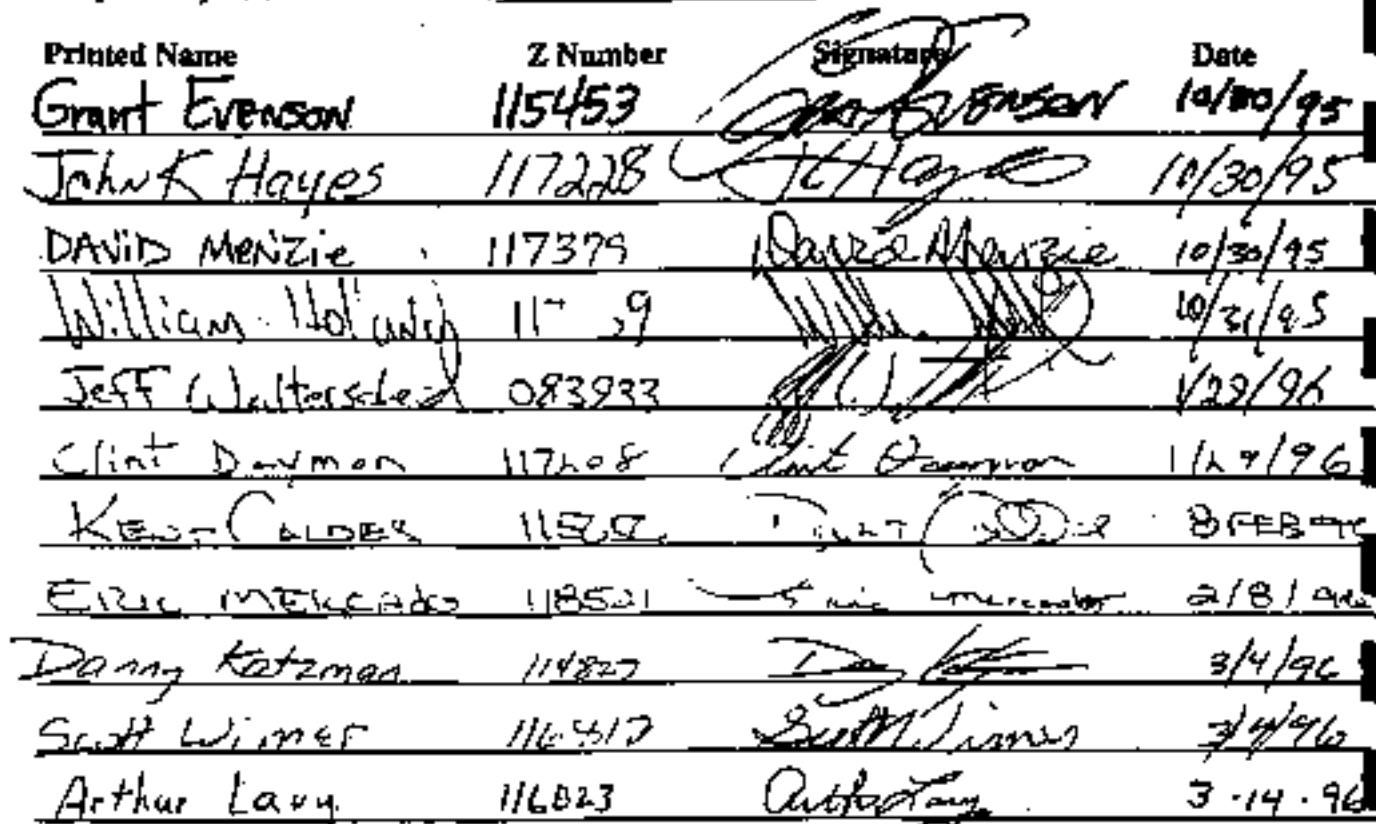 Printed Name Z Number Signature Date
Grant Evenson 115453 Evenson 10/30/95
John K Hayes 117228 JK Hayes 10/30/95
DAViD MeNZie 117379 David Menzie 10/30/95
William 10/31/95
Jeff 083933 1/29/96
Clint Daymon Clint 96
KENT CALDER 8 FEB
ERIC MERCADO 118521 Eric Mercado 2/8/
Danny Katzman 114827 3/4/96
Scott Wimer Scott Wimer 3/4/96
Arthur Lavy 116823 Arthur Lavy 3-14-96